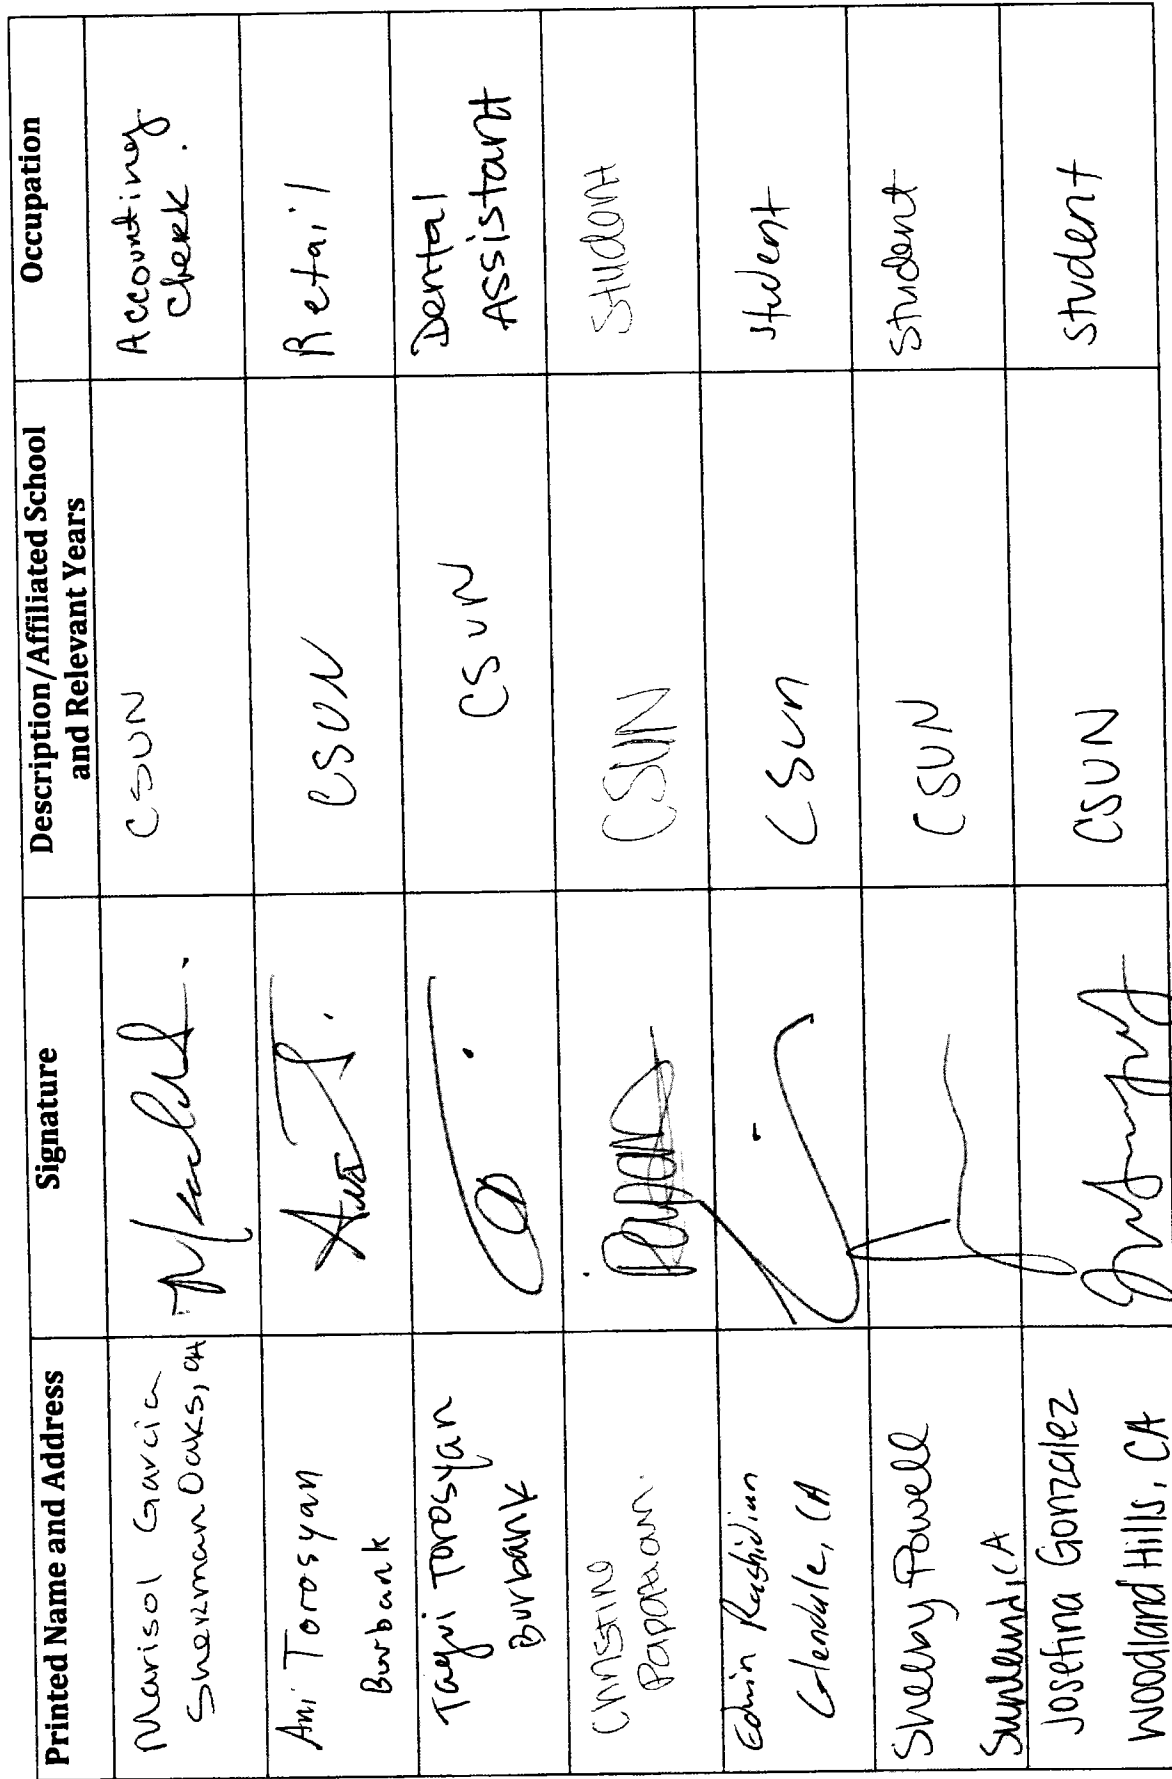 Printed Name and Address
Signature
Description/Affiliated School
and Relevant Years
Occupation
Marisol Garcia
Sherman Oaks, CA
CSUN
Accounting
Clerk.
Ani Torosyan
Burbank
CSUN
Retail
Taqui Torosyan
Burbank
CSUN
Dental
Assistant
Christine
CSUN
Student
Edwin Rashidian
Glendale, CA
CSUN
student
Shelby Powell
Sunland, CA
CSUN
Student
Josefina Gonzalez
Woodland Hills, CA
CSUN
student